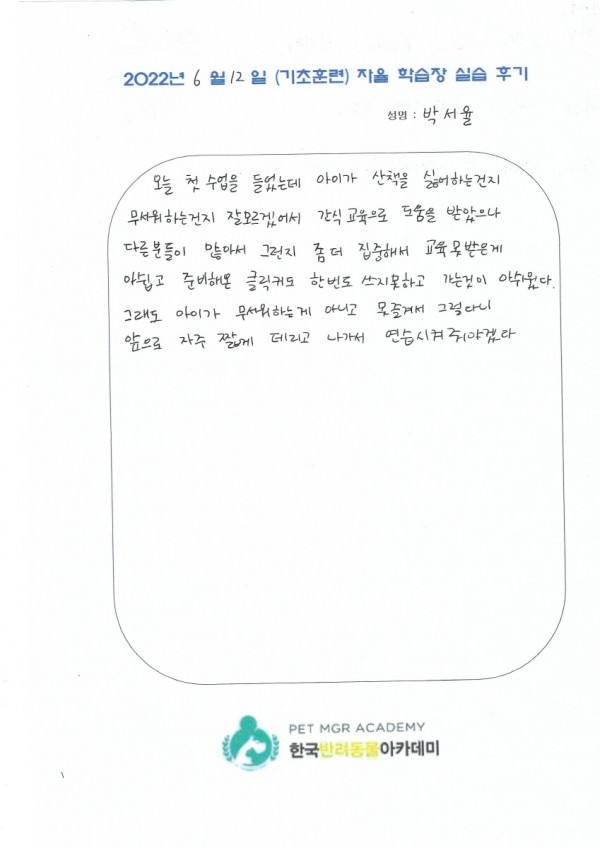 2022년 6 월 12 일 (기초훈련) 자율 학습장 실습 후기
성명 : 박서율
오늘 첫 수업을 들었는데 아이가 산책을 싫어하는건지
무서워하는건지 잘모르겠어서 간식교육으로 도움을 받았으나
다른분들이 많아서 그런지 좀 더 집중해서 교육못받은게
아쉽고 준비해온 클릭커도 한번도 쓰지못하고 가는것이 아쉬웠다.
그래도 아이가 무서워하는게 아니고 못즐겨서 그렇다니
앞으로 자주 짧게 데리고 나가서 연습시켜줘야겠다
PET MGR ACADEMY
한국반려동물아카데미